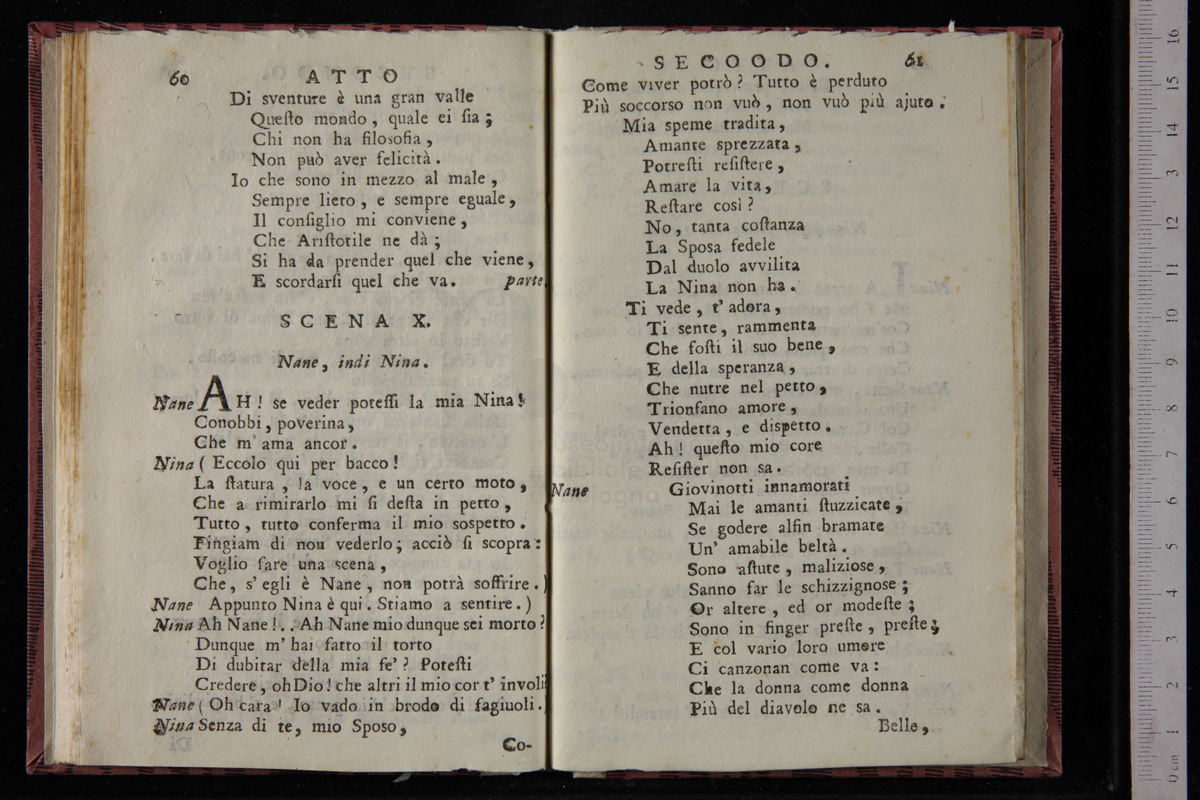 60
ATTO
Di sventure è una gran valle
Queſto mondo, quale ei ſia;
Chi non ha filosofia,
Non può aver felicità.
Io che sono in mezzo al male,
Sempre lieto, e sempre eguale,
Il conſiglio mi conviene,
Che Ariſtotile ne dà;
Si ha da prender quel che viene,
E scordarſi quel che va. parte
SCENA X.
Nane, indi Nina.
Nane AH! se veder poteſſi la mia Nina!
Conobbi, poverina,
Che m'ama ancor.
Nina (Eccolo qui per bacco!
La ſtatura, la voce, e un certo moto,
Che a rimirarlo mi ſi deſta in petto,
Tutto, tutto conferma il mio sospetto.
Fingiam di non vederlo; acciò ſi scopra:
Voglio fare una scena,
Che, s'egli è Nane, non potrà soffrire.)
Nane Appunto Nina è qui. Stiamo a sentire.)
Nina Ah Nane!.. Ah Nane mio dunque sei morto?
Dunque m'hai fatto il torto
Di dubitar della mia fe'? Poteſti
Credere, oh Dio! che altri il mio cor t'involi
Nane (Oh cara! Io vado in brodo di fagiuoli.
Nina Senza di te, mio Sposo,
Co-
SECOODO.
61
Come viver potrò? Tutto è perduto
Più soccorso non vuò, non vuò più ajuto.
Mia speme tradita,
Amante sprezzata,
Potreſti reſiſtere,
Amare la vita,
Reſtare così?
No, tanta coſtanza
La Sposa fedele
Dal duolo avvilita
La Nina non ha.
Ti vede, t'adora,
Ti sente, rammenta
Che foſti il suo bene,
E della speranza,
Che nutre nel petto,
Trionfano amore,
Vendetta, e dispetto.
Ah! queſto mio core
Reſiſter non sa.
Nane Giovinotti innamorati
Mai le amanti ſtuzzicate,
Se godere alfin bramate
Un'amabile beltà.
Sono aſtute, maliziose,
Sanno far le schizzignose;
Or altere, ed or modeſte;
Sono in finger preſte, preſte;
E col vario loro umore
Ci canzonan come va:
Che la donna come donna
Più del diavolo ne sa.
Belle,